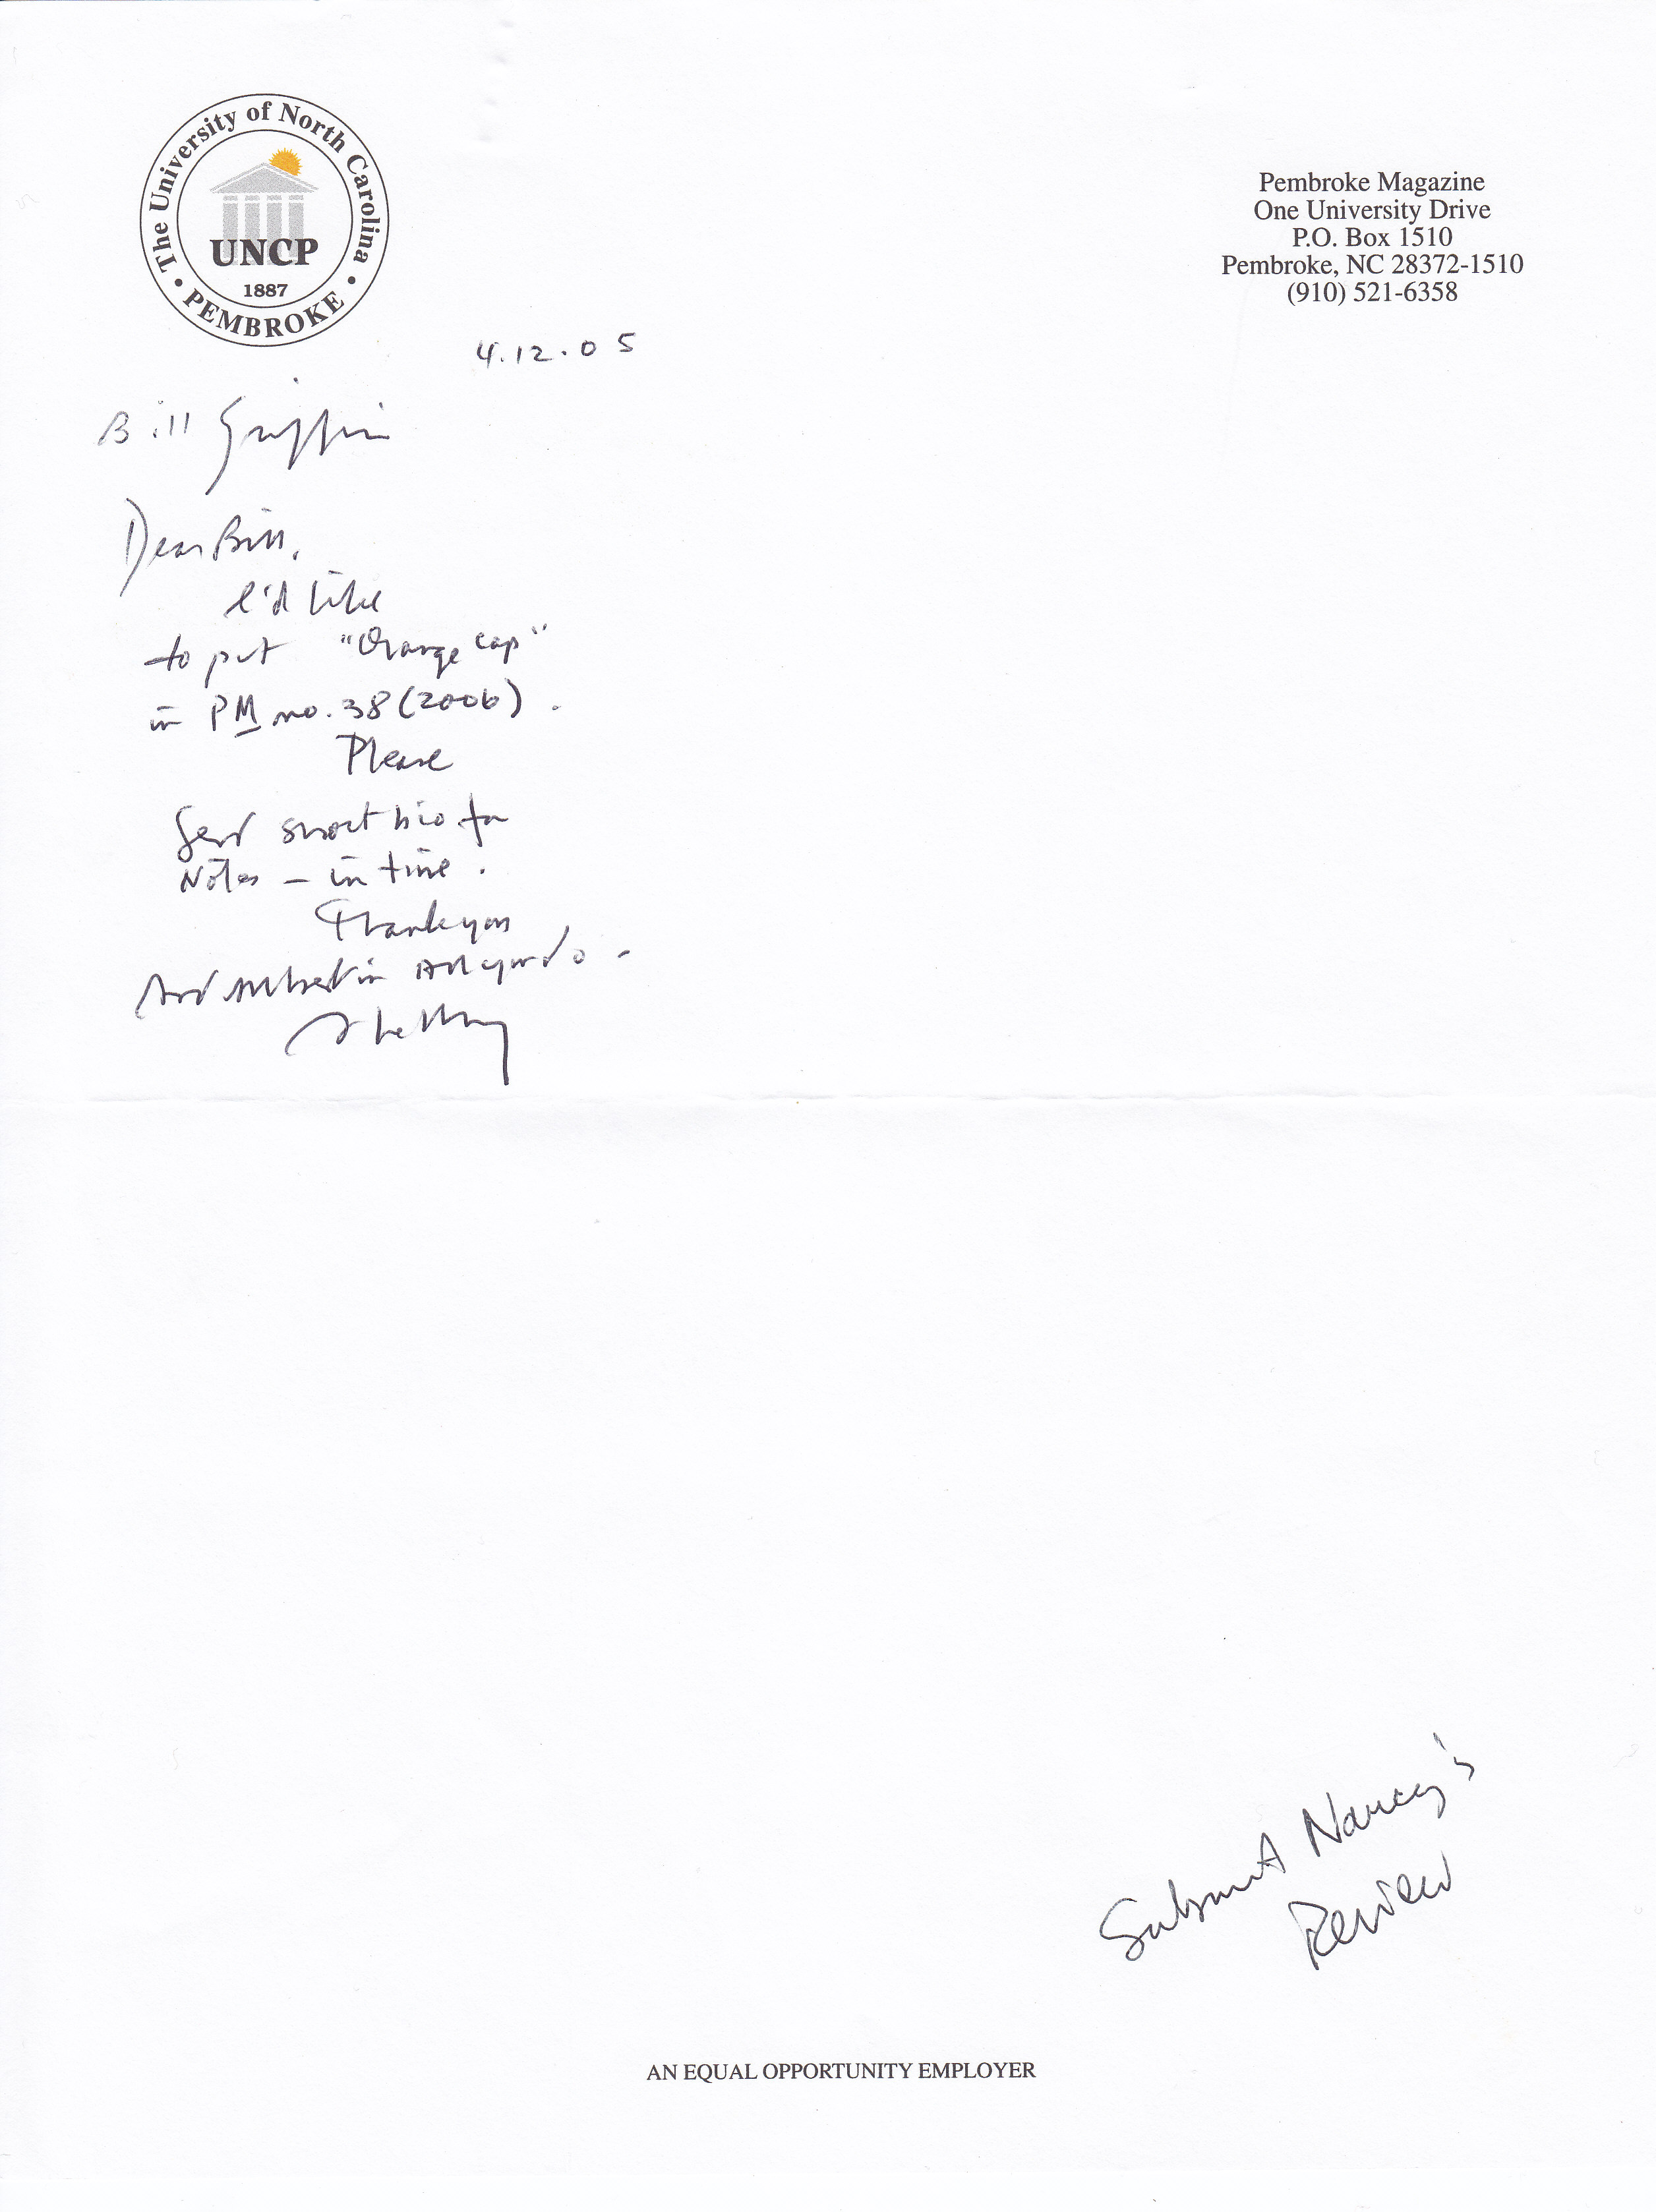 The University of North Carolina
UNCP
1887
• PEMBROKE •
Pembroke Magazine
One University Drive
P.O. Box 1510
Pembroke, NC 28372-1510
(910) 521-6358
4.12.05
Bill Griffin
Dear Bill,
I'd like
to put "Orange Cap"
in PM no. 38 (2006).
Please
Send short bio for
Notes – in time.
Thank you
And all best in all you do –
Shelby
Submit Nancy's
Review
AN EQUAL OPPORTUNITY EMPLOYER